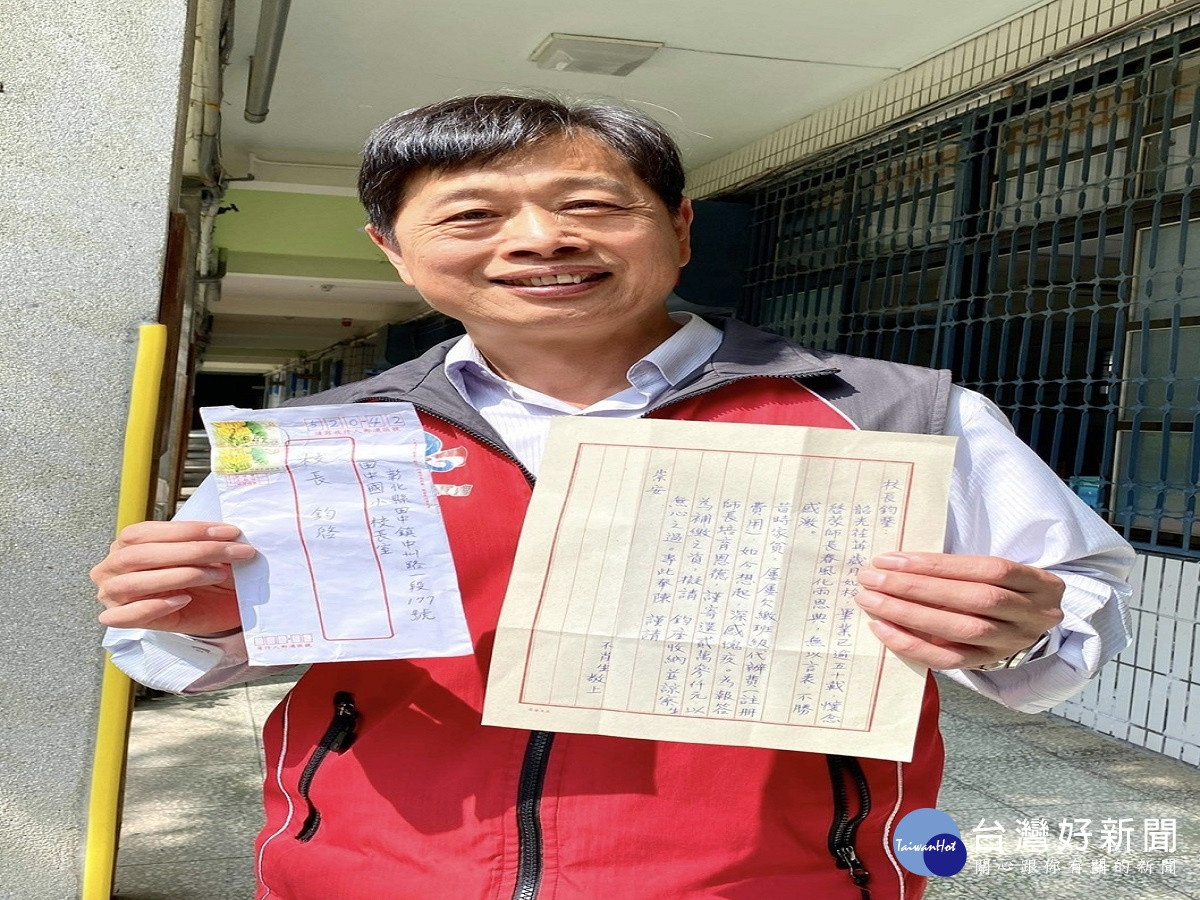 52042
彰化縣田中鎮中州路一段177號
田中國小 校長室
校長 鈞啓
校長鈞鑒:
韶光荏苒歲月如梭,畢業已逾五十載,懷念
啓蒙師長春風化雨恩典,無以言表,不勝
感激。
昔時家貧,屢屢欠繳班級代辦費(註冊
費用)如今想起,深感愧疚。為報答
師長培育恩德,謹寄還貳萬參仟元以
為補繳之資,擬請 鈞座收納並諒察生
無心之過。專此奉陳 謹請
崇安
不肖生敬上
TaiwanHot
台灣好新聞
關心跟你有關的新聞